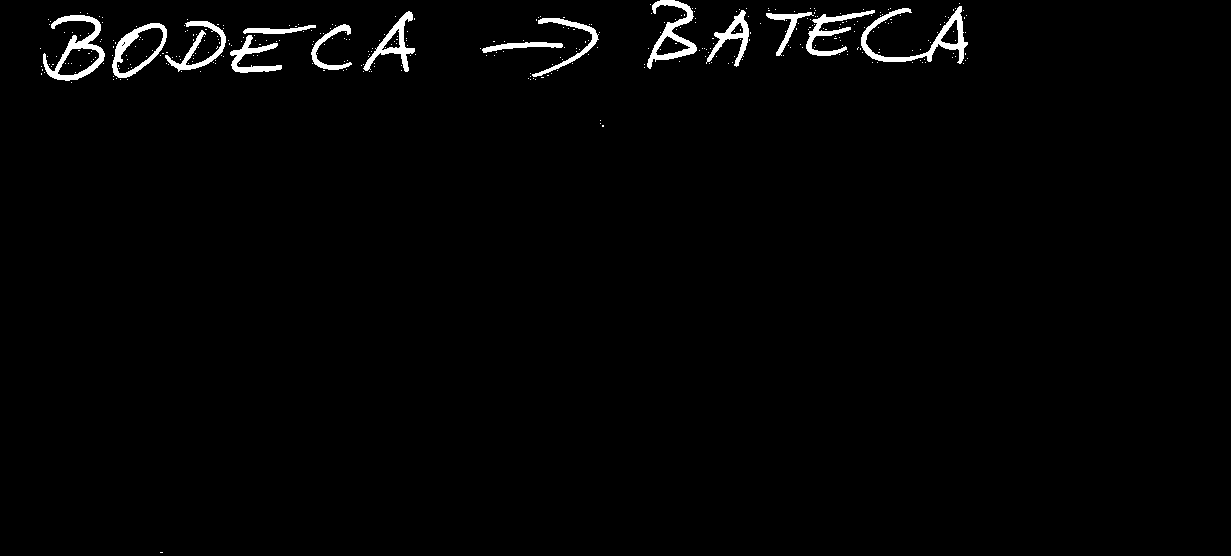 BODECA → BATECA